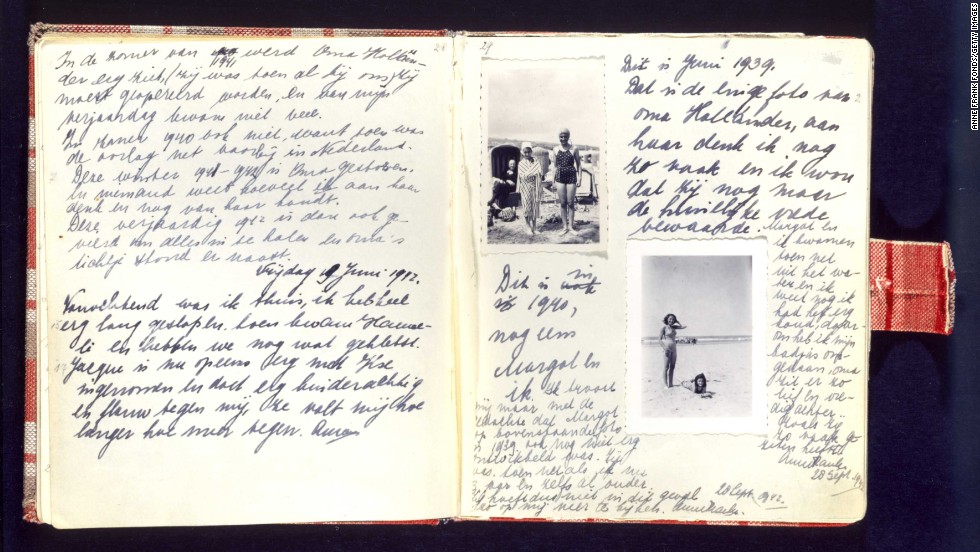 28
In de zomer van 1941 werd Oma Hollän-
der erg ziek, (zij was toen al bij ons), zij
moest geopereerd worden, en van mijn
verjaardag kwam niet veel.
In zomer 1940 ook niet, want toen was
de oorlog net voorbij in Nederland.
Deze winter 1941-1942 is Oma gestorven.
En niemand weet hoeveel ik aan haar
denk en nog van haar houdt.
Deze verjaardag 1942 is dan ook ge-
vierd om alles in te halen en oma's
lichtje stond er naast.
Vrijdag 19 Juni 1942.
Vanochtend was ik thuis, ik heb heel
erg lang geslapen, toen kwam Hanne-
li en hebben we nog wat gekletst.
Jacque is nu opeens erg met Ilse
ingenomen en doet erg kinderachtig
en flauw tegen mij, ze valt mij hoe
langer hoe meer tegen. Anne
29
Dit is Juni 1939.
Dat is de enige foto van
oma Holländer, aan
haar denk ik nog
zo vaak en ik wou
dat zij nog maar
de huiselijke vrede
bewaarde. Margot en
ik kwamen
toen net
uit het wa-
ter en ik
weet nog ik
had het erg
koud, daar-
om heb ik mijn
badjas om-
gedaan, oma
zit er zo
lief en vre-
dig achter.
Zoals zij
zo vaak ge-
zeten heeft.
Anne Frank.
28 Sept. 1942
Dit is in
1940,
nog eens
Margot en
ik. Ik troost
mij maar met de
gedachte dat Margot
op bovenstaande foto
in 1939 ook nog niet erg
ontwikkeld was. Zij
was toen net als ik nu
13 jaar en zelfs al ouder.
Zij hoeft dus niet in dit geval
zo op mij neer te kijken. Anne Frank.
28 Sept. 1942.
ANNE FRANK FONDS/GETTY IMAGES